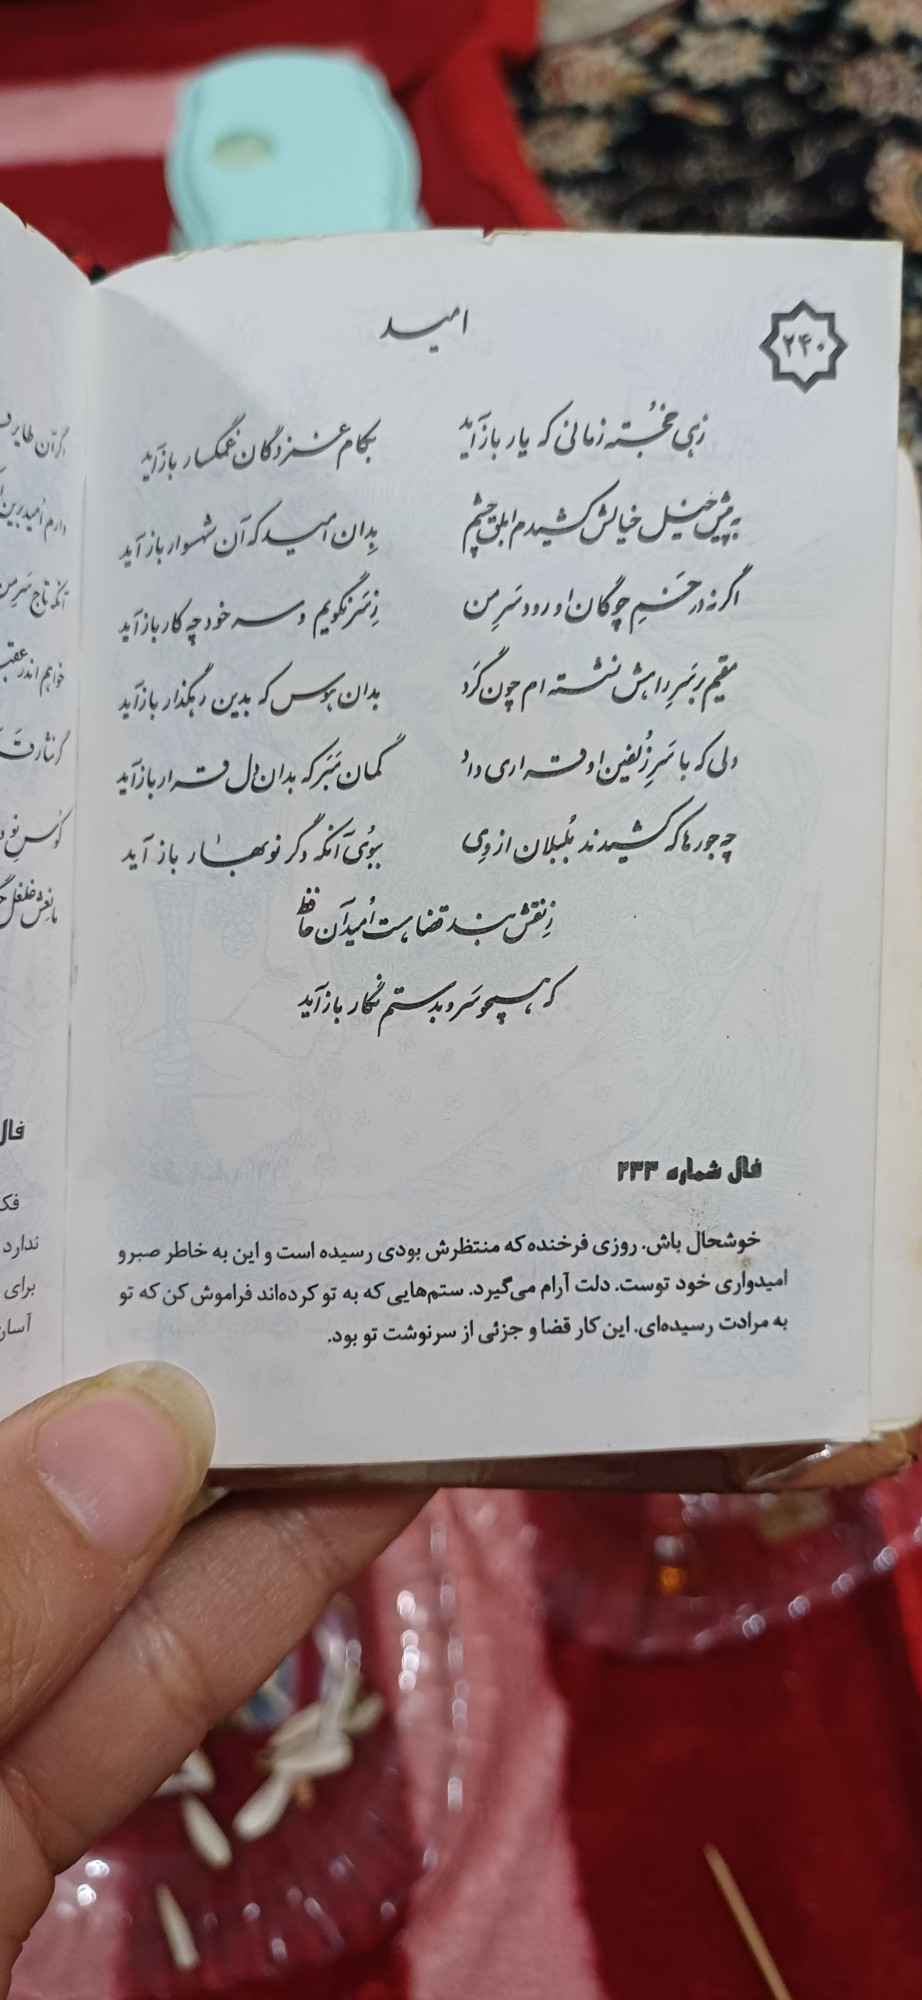 امید
۲۴۰
زهی خجسته زمانی که یار بازآید بکام غمزدگان غمگسار بازآید
به پیش خیل خیالش کشیدم ابلق چشم بدان امید که آن شهسوار بازآید
اگر نه در خم چوگان او رود سر من ز سر نگویم و سر خود چه کار بازآید
مقیم بر سر راهش نشسته ام چون گرد بدان هوس که بدین رهگذار بازآید
دلی که با سر زلفین او قراری داد گمان مبر که بدان دل قرار بازآید
چه جورها که کشیدند بلبلان از دی ببوی آنکه دگر نوبهار باز آید
ز نقش بند قضا هست امید آن حافظ
که همچو سرو بدستم نگار بازآید
فال شماره ۲۳۳
خوشحال باش. روزی فرخنده که منتظرش بودی رسیده است و این به خاطر صبر و
امیدواری خود توست. دلت آرام می‌گیرد. ستم‌هایی که به تو کرده‌اند فراموش کن که تو
به مرادت رسیده‌ای. این کار قضا و جزئی از سرنوشت تو بود.
اگر آن طایر
دارم امید برین
آنکه تاج سر من
خواهم اندر عقب
گر نثار قد
کوس نو
مانعش غلغل
فال
فک
ندارد
برای
آسان